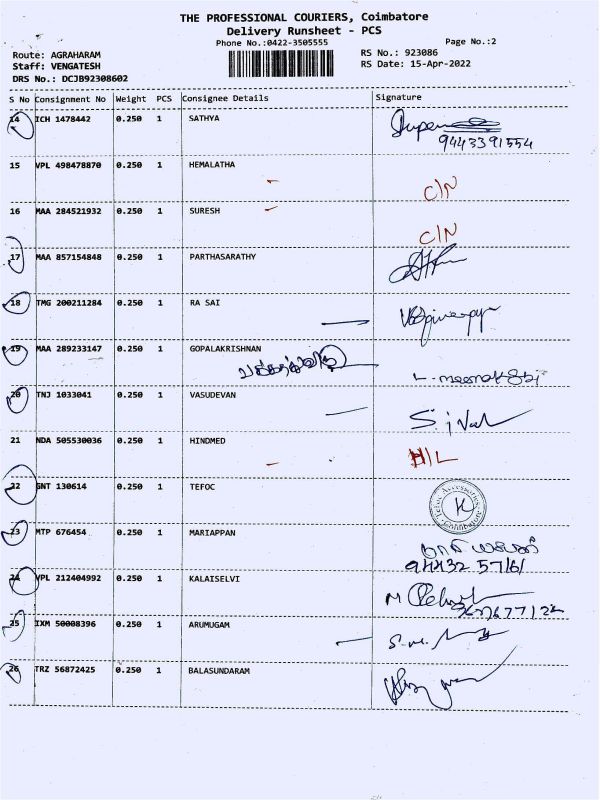 THE PROFESSIONAL COURIERS, Coimbatore
Delivery Runsheet - PCS
Phone No.:0422-3505555 Page No.:2
Route: AGRAHARAM RS No.: 923086
Staff: VENGATESH RS Date: 15-Apr-2022
DRS No.: DCJB92308602
S No Consignment No Weight PCS Consignee Details Signature
14 ICH 1478442 0.250 1 SATHYA
9443391554
15 VPL 498478870 0.250 1 HEMALATHA
C/N
16 MAA 284521932 0.250 1 SURESH
C/N
17 MAA 857154848 0.250 1 PARTHASARATHY
18 TMG 200211284 0.250 1 RA SAI
19 MAA 289233147 0.250 1 GOPALAKRISHNAN
L. meenakshi
20 TNJ 1033041 0.250 1 VASUDEVAN
21 NDA 505530036 0.250 1 HINDMED
H/L
22 GNT 130614 0.250 1 TEFOC
Tefoc Accessories Coimbatore
23 MTP 676454 0.250 1 MARIAPPAN
94432 57161
24 VPL 212404992 0.250 1 KALAISELVI
25 IXM 50008396 0.250 1 ARUMUGAM
26 TRZ 56872425 0.250 1 BALASUNDARAM